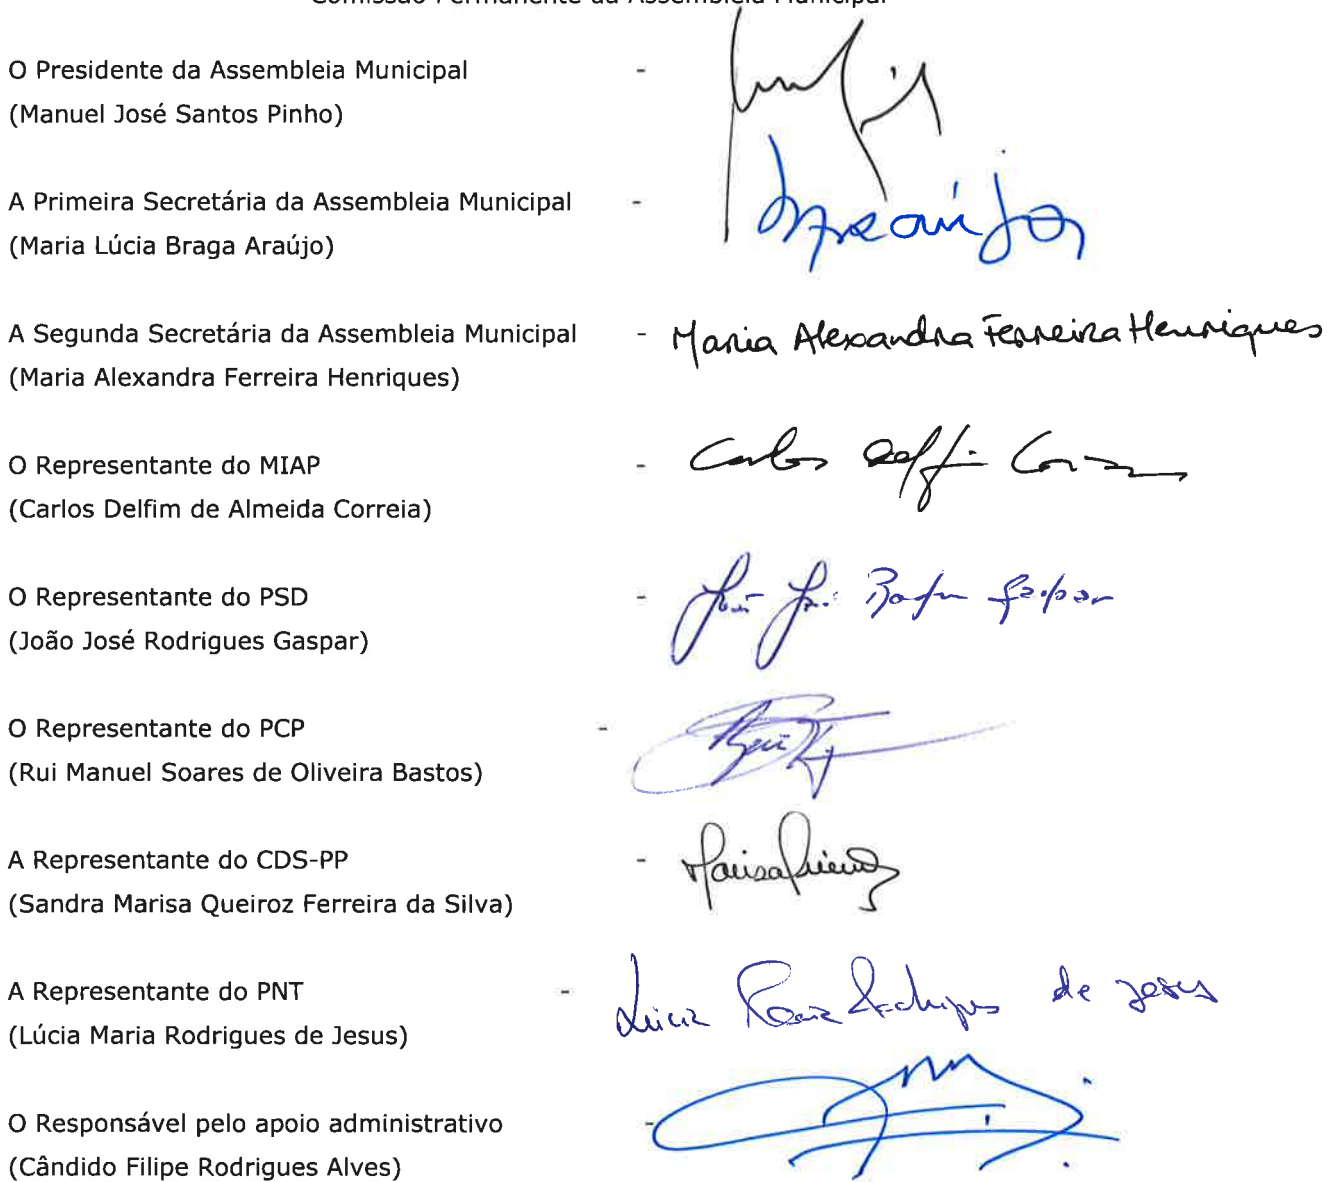 Comissão Permanente da Assembleia Municipal
O Presidente da Assembleia Municipal -
(Manuel José Santos Pinho)
A Primeira Secretária da Assembleia Municipal -
(Maria Lúcia Braga Araújo)
A Segunda Secretária da Assembleia Municipal - Maria Alexandra Ferreira Henriques
(Maria Alexandra Ferreira Henriques)
O Representante do MIAP - Carlos Delfim Correia
(Carlos Delfim de Almeida Correia)
O Representante do PSD - João José Gaspar
(João José Rodrigues Gaspar)
O Representante do PCP -
(Rui Manuel Soares de Oliveira Bastos)
A Representante do CDS-PP - Marisa
(Sandra Marisa Queiroz Ferreira da Silva)
A Representante do PNT - Lúcia Maria Rodrigues de Jesus
(Lúcia Maria Rodrigues de Jesus)
O Responsável pelo apoio administrativo -
(Cândido Filipe Rodrigues Alves)